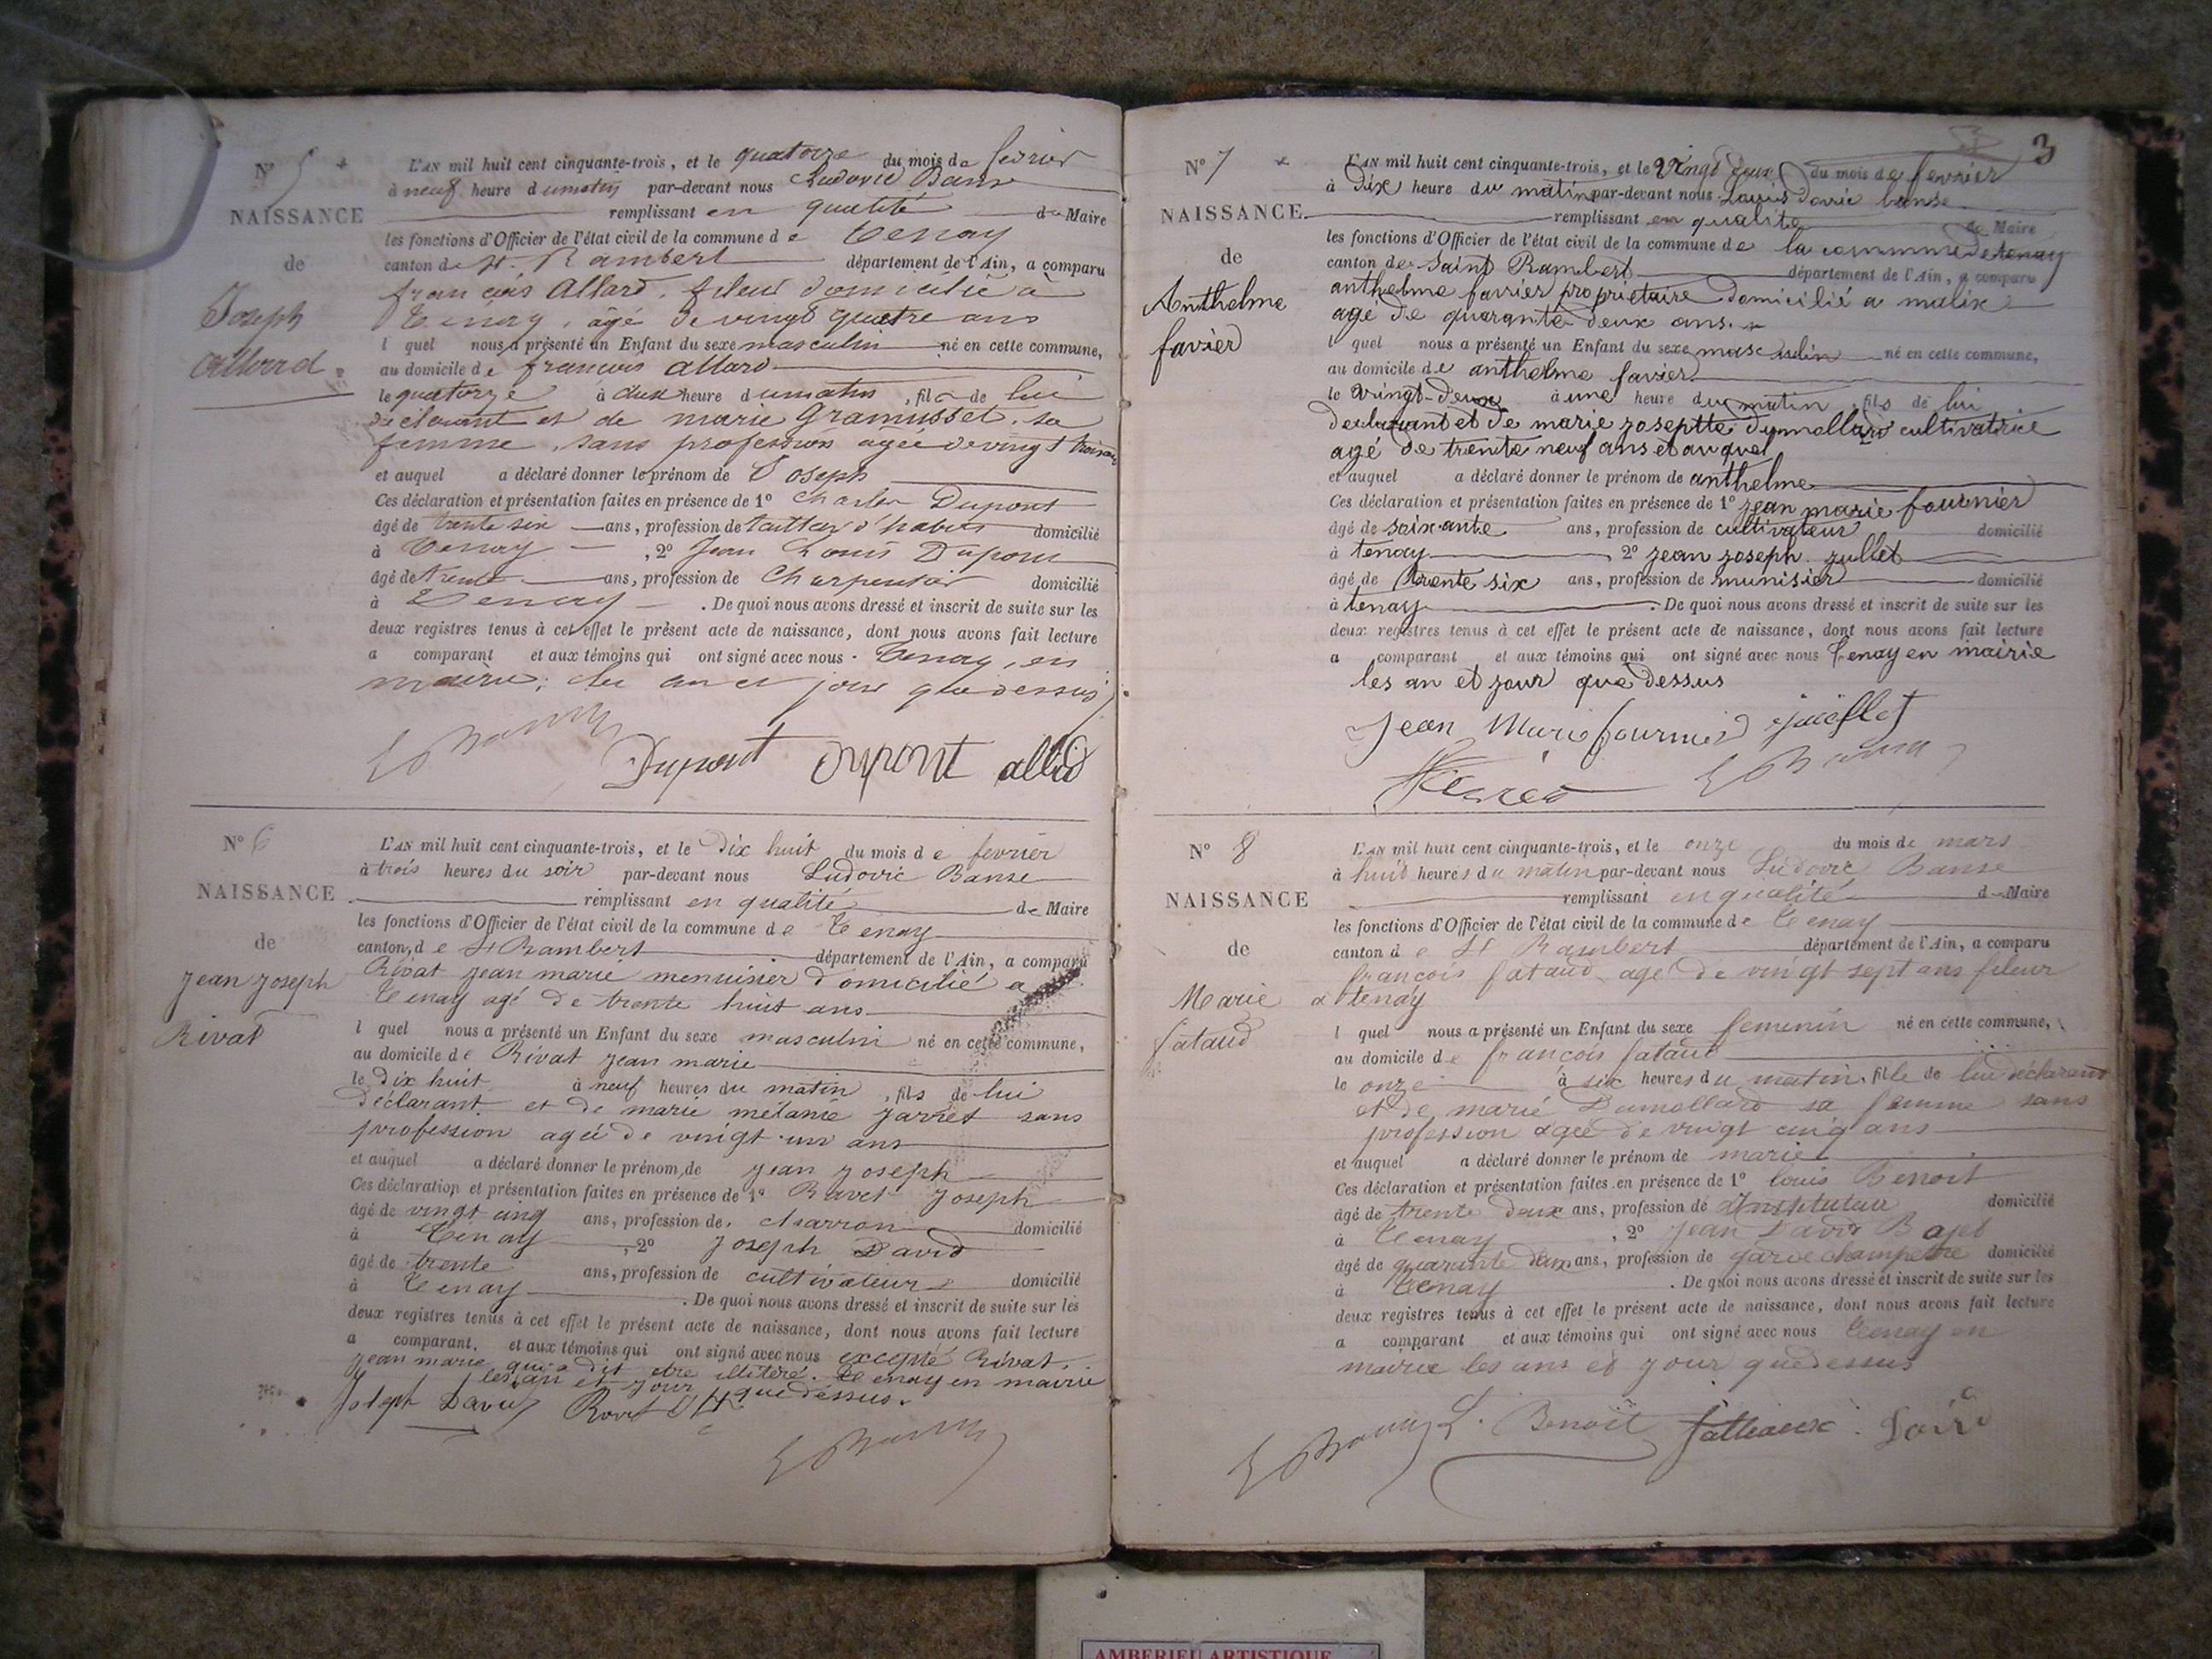 N° 5
NAISSANCE
de
Joseph
Allard
L'AN mil huit cent cinquante-trois, et le quatorze du mois de fevrier
à neuf heure du matin par-devant nous Ludovic Banse
remplissant en qualité de Maire
les fonctions d'Officier de l'état civil de la commune de Tenay
canton de St. Rambert département de l'Ain, a comparu
françois Allard, fileur domicilié à
Tenay, âgé de vingt quatre ans
l quel nous a présenté un Enfant du sexe masculin né en cette commune,
au domicile de françois allard
le quatorze à deux heure du matin, fils de lui
déclarant et de marie Gramusset, sa
femme, sans profession agée de vingt trois ans
et auquel a déclaré donner le prénom de Joseph
Ces déclaration et présentation faites en présence de 1° Charles Dupont
âgé de trente six ans, profession de tailleur d'habits domicilié
à Tenay, 2° Jean Louis Dupont
âgé de trente ans, profession de Charpentier domicilié
à Tenay. De quoi nous avons dressé et inscrit de suite sur les
deux registres tenus à cet effet le présent acte de naissance, dont nous avons fait lecture
a comparant et aux témoins qui ont signé avec nous. Tenay, en
mairie, les an et jour que dessus
Dupont Dupont
N° 6
NAISSANCE
de
Jean Joseph
Rivat
L'AN mil huit cent cinquante-trois, et le dix huit du mois de fevrier
à trois heures du soir par-devant nous Ludovic Banse
remplissant en qualité de Maire
les fonctions d'Officier de l'état civil de la commune de Tenay
canton de St Rambert département de l'Ain, a comparu
Rivat jean marie menuisier domicilié a
Tenay agé de trente huit ans
l quel nous a présenté un Enfant du sexe masculin né en cette commune,
au domicile de Rivat jean marie
le dix huit à neuf heures du matin, fils de lui
déclarant et de marie mélanie jarret sans
profession agée de vingt un ans
et auquel a déclaré donner le prénom de jean joseph
Ces déclaration et présentation faites en présence de 1° Ravet Joseph
âgé de vingt cinq ans, profession de charron domicilié
à Tenay, 2° Joseph David
âgé de trente ans, profession de cultivateur domicilié
à Tenay. De quoi nous avons dressé et inscrit de suite sur les
deux registres tenus à cet effet le présent acte de naissance, dont nous avons fait lecture
a comparant, et aux témoins qui ont signé avec nous excepté Rivat
jean marie qui a dit etre illitéré. Tenay en mairie
les an et jour que dessus.
Joseph David
3
N° 7
NAISSANCE
de
Anthelme
favier
L'AN mil huit cent cinquante-trois, et le Vingt deux du mois de fevrier
à Dix heure du matin par-devant nous Louis davic banse
remplissant en qualite de Maire
les fonctions d'Officier de l'état civil de la commune de la commune de tenay
canton de Saint Rambert département de l'Ain, a comparu
anthelme favier propriétaire domicilié a malix
age de quarante deux ans.
l quel nous a présenté un Enfant du sexe masculin né en cette commune,
au domicile de anthelme favier
le vingt-deux à une heure du matin, fils de lui
declarant et de marie joseptte dumollard cultivatrice
agé de trente neuf ans et auquel
et auquel a déclaré donner le prénom de anthelme
Ces déclaration et présentation faites en présence de 1° jean marie fournier
âgé de soixante ans, profession de cultivateur domicilié
à tenay, 2° jean joseph jullet
âgé de trente six ans, profession de munisier domicilié
à tenay. De quoi nous avons dressé et inscrit de suite sur les
deux registres tenus à cet effet le présent acte de naissance, dont nous avons fait lecture
a comparant et aux témoins qui ont signé avec nous tenay en mairie
les an et jour que dessus
Jean Marie fournier
N° 8
NAISSANCE
de
Marie
fataud
L'AN mil huit cent cinquante-trois, et le onze du mois de mars
à huit heures du matin par-devant nous Ludovic Banse
remplissant en qualité de Maire
les fonctions d'Officier de l'état civil de la commune de Tenay
canton de St Rambert département de l'Ain, a comparu
françois fataud agé de vingt sept ans fileur
a tenay
l quel nous a présenté un Enfant du sexe femenin né en cette commune,
au domicile de françois fataud
le onze à six heures du matin, fille de lui déclarant
et de marie Dumollard sa femme sans
profession agée de vingt cinq ans
et auquel a déclaré donner le prénom de marie
Ces déclaration et présentation faites en présence de 1° louis Benoit
âgé de trente deux ans, profession de Instituteur domicilié
à Tenay, 2° Jean David
âgé de quarante deux ans, profession de garde champetre domicilié
à Tenay. De quoi nous avons dressé et inscrit de suite sur les
deux registres tenus à cet effet le présent acte de naissance, dont nous avons fait lecture
a comparant et aux témoins qui ont signé avec nous Tenay en
mairie les ans et jour que dessus
L. Benoit
AMBERIEU ARTISTIQUE